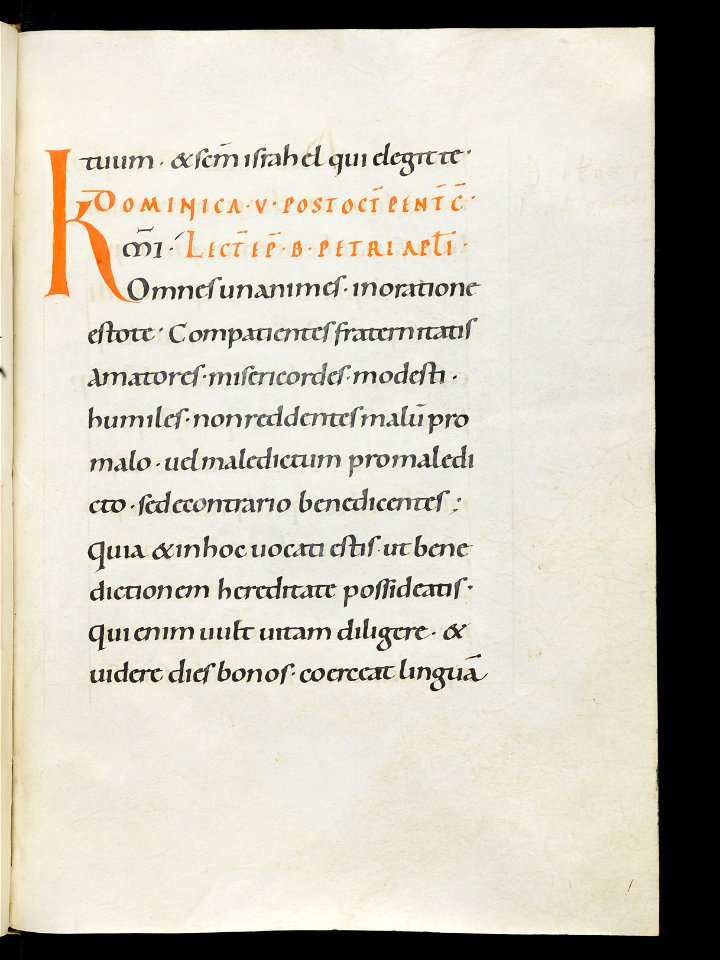 tuum · & sc̄m israhel qui elegit te ·
DOMINICA · V · POST OCT̄ PENT̄C̄ ·
K m̄i · LECT̄ EP̄ · B · PETRI APL̄I ·
Omnes unanimes · in oratione
estote · Compatientes fraternitatis
amatores · misericordes · modesti ·
humiles · non reddentes malū pro
malo · uel maledictum pro maledi
cto · sed e contrario benedicentes ;
Quia & in hoc uocati estis · ut bene
dictionem hereditate possideatis ·
Qui enim uult uitam diligere · &
uidere dies bonos · coerceat linguā